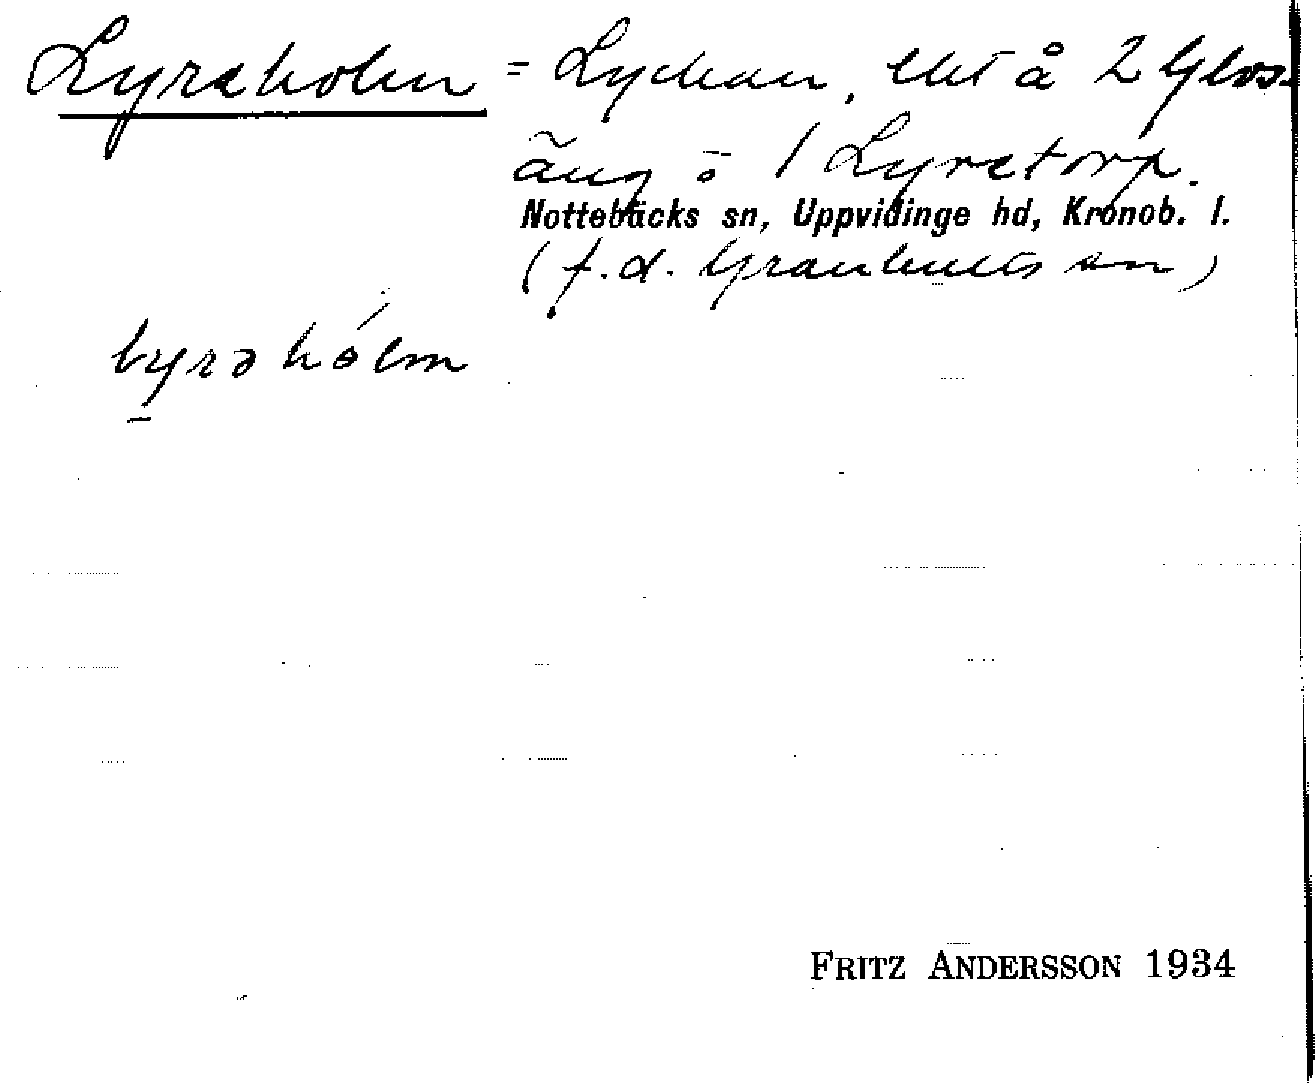 Lyreholm = Lyckan, lht å 2 Glos-
äng o 1 Lyretorp.
Nottebäcks sn, Uppvidinge hd, Kronob. l.
(f.d. Granhults sn)
lyrəhólm
FRITZ ANDERSSON 1934